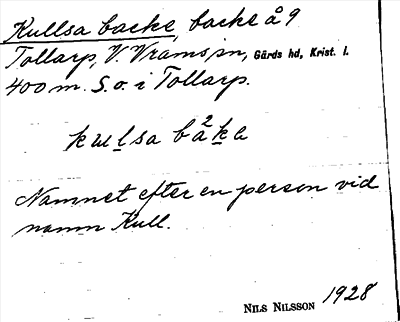 Kullsa backe, backe å 9
Tollarp, V. Vrams sn, Gärds hd, Krist. l.
400 m. S.o. i Tollarp.
kulsa bà²ka
Namnet efter en person vid
namn Kull.
NILS NILSSON 1928